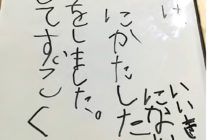 いいき
にない
にかたした
をしました。
してすごく